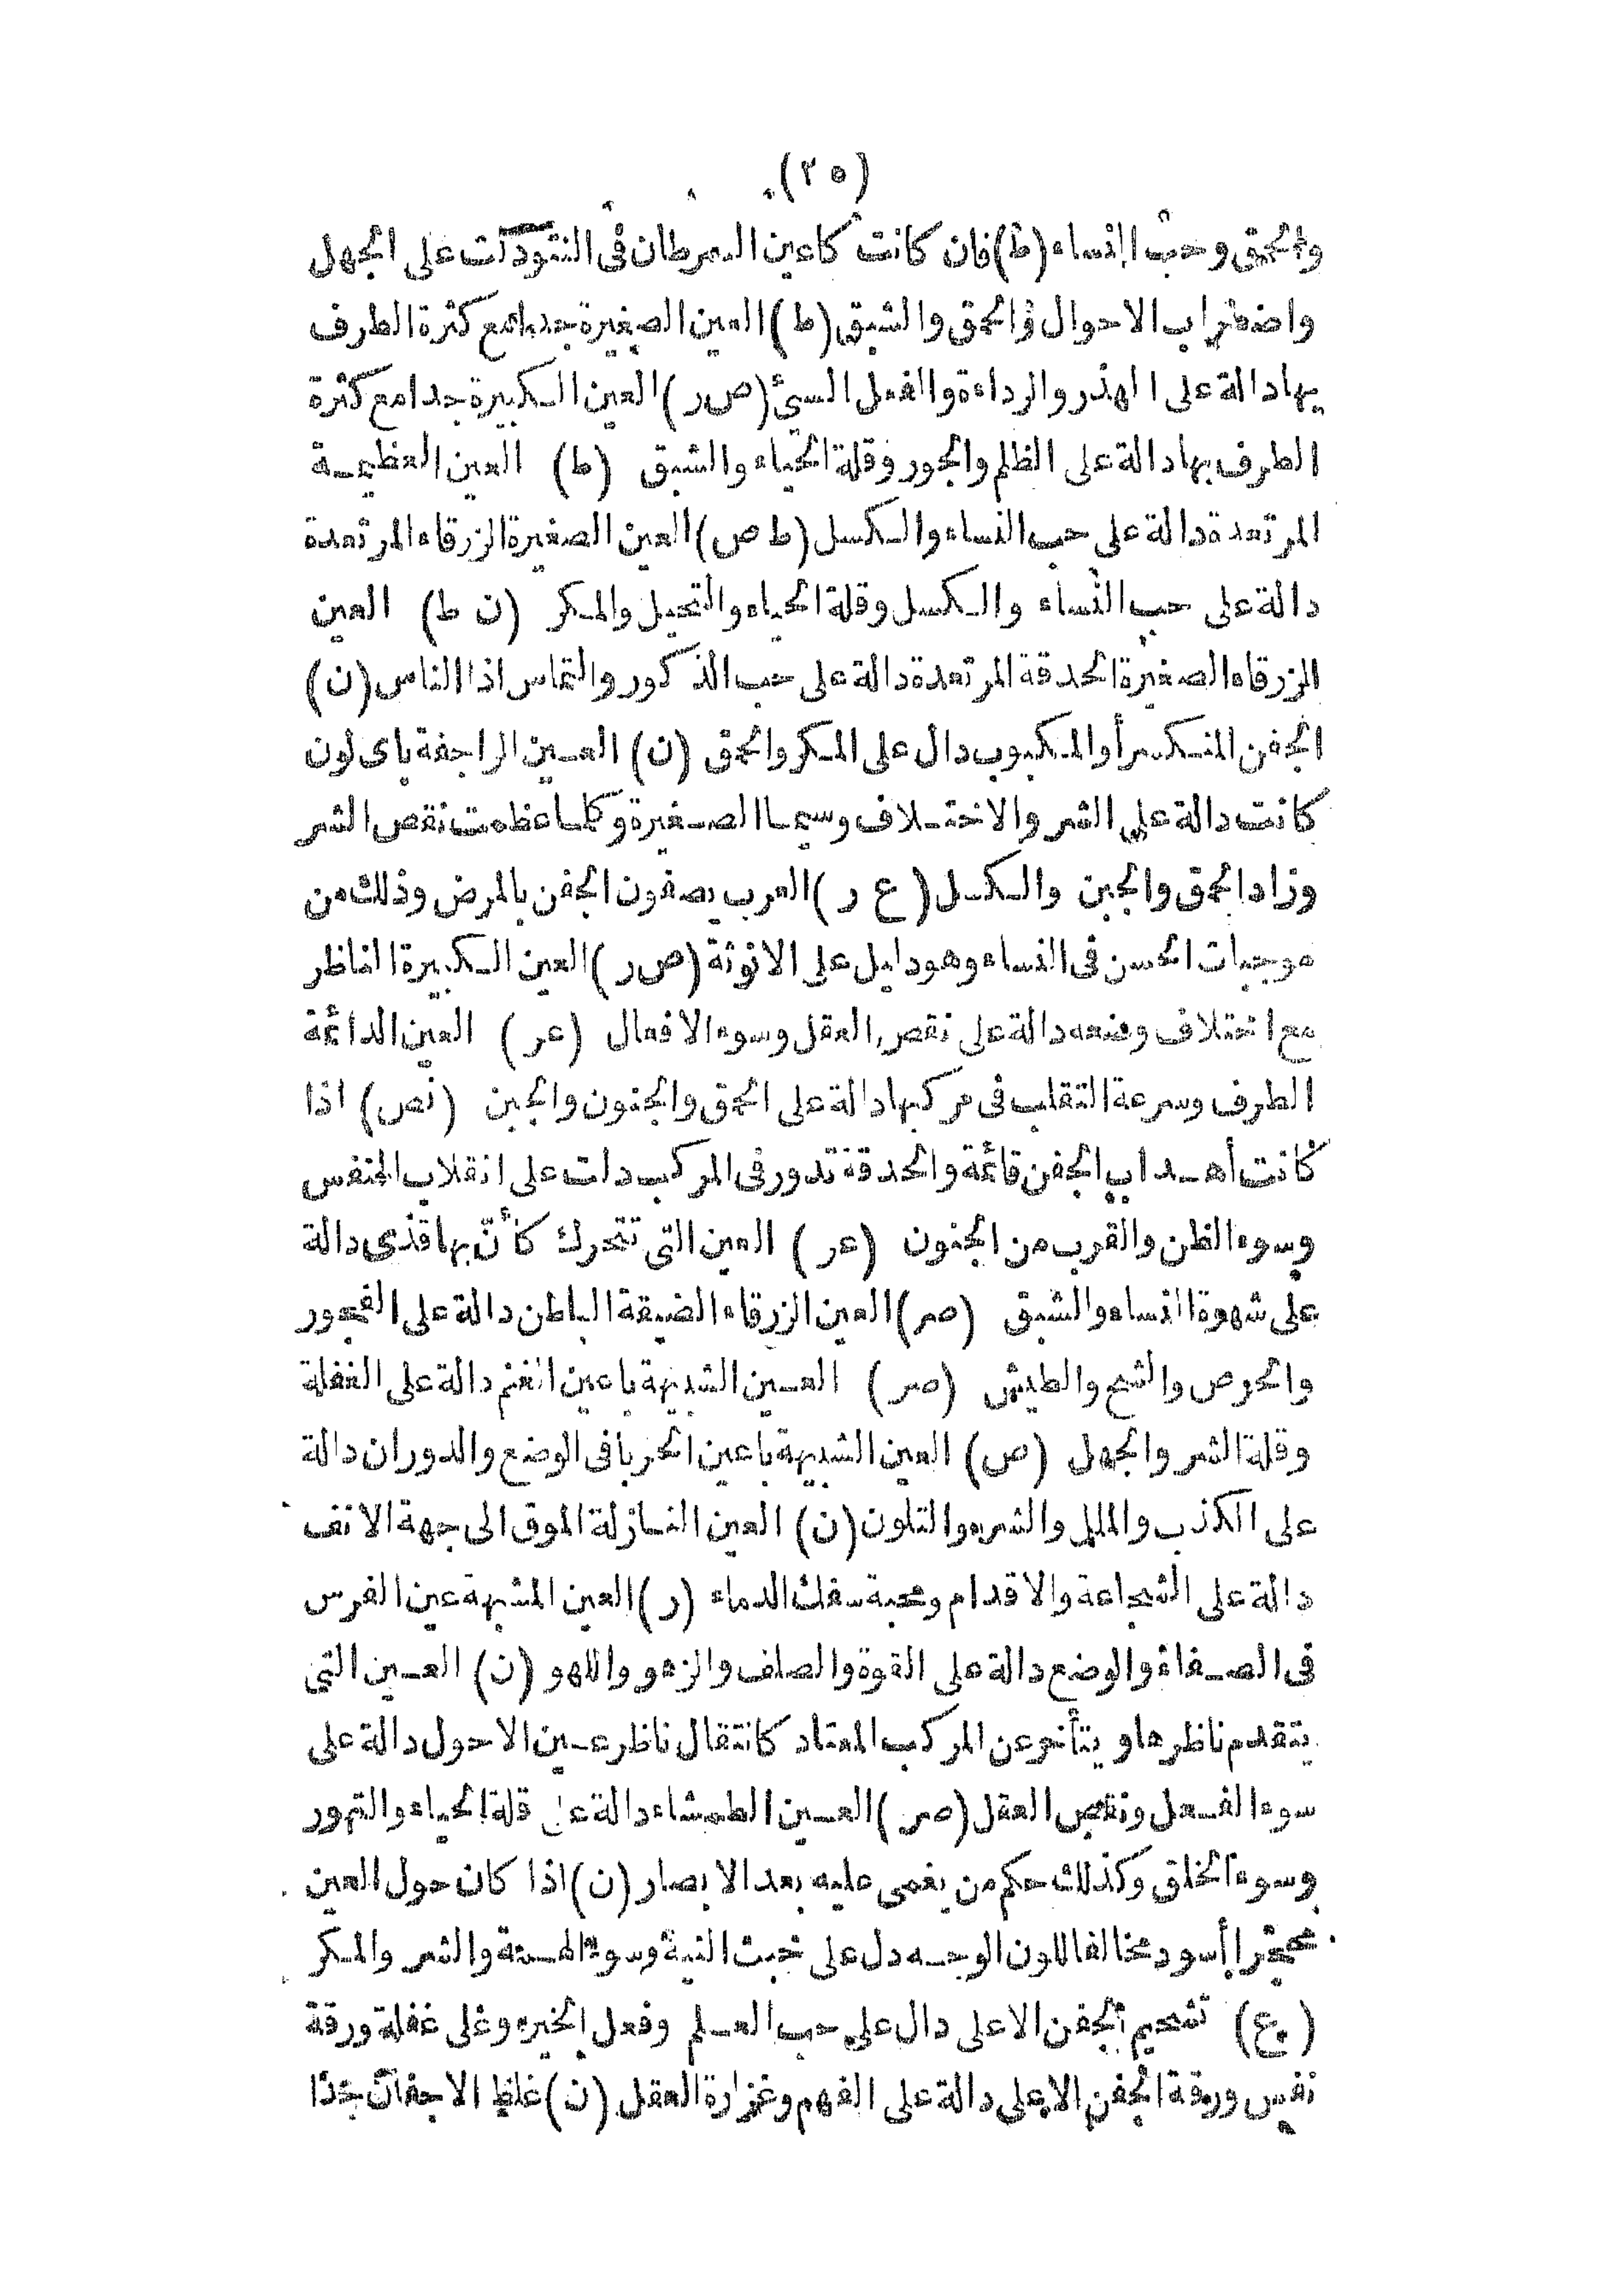 (٢٥)
والحمق وحب النساء (ط) فان كانت كاعين السرطان فى النتود لت على الجهل
واضطراب الاحوال والحمق والشبق (ط) العين الصغيرة جدا مع كثرة الطرف
بها دالة على الهذر والرداءة والفعل السيئ (ص ر) العين الكبيرة جدا مع كثرة
الطرف بها دالة على الظلم والجور وقلة الحياء والشبق (ط) العين العظيمة
المرتعدة دالة على حب النساء والكسل (ط ص) العين الصغيرة الزرقاء المرتعدة
دالة على حب النساء والكسل وقلة الحياء والتحيل والمكر (ن ط) العين
الزرقاء الصغيرة الحدقة المرتعدة دالة على حب الذكور والتماس اذا الناس (ن)
الجفن المنكسر أو المكبوب دال على المكر والحمق (ن) العين الراجفة باى لون
كانت دالة على الشر والاختلاف وسيما الصغيرة وكلما عظمت نقص الشر
وزاد الحمق والجبن والكسل (ع ر) العرب يصفون الجفن بالمرض وذلك من
موجبات الحسن فى النساء وهو دليل على الانوثة (ص ر) العين الكبيرة الناظر
مع اختلاف وضعه دالة على نقص العقل وسوء الافعال (عر) العين الدائمة
الطرف وسرعة التقلب فى مركبها دالة على الحمق والجنون والجبن (نص) اذا
كانت أهداب الجفن قائمة والحدقة تدور فى المركب دلت على انقلاب النفس
وسوء الظن والقرب من الجنون (عر) العين التى تتحرك كأنّ بها قذى دالة
على شهوة النساء والشبق (صر) العين الزرقاء الضيقة الباطن دالة على الفجور
والحرص والشح والطيش (صر) العين الشبيهة باعين الغنم دالة على الغفلة
وقلة الشر والجهل (ص) العين الشبيهة باعين الحربا فى الوضع والدوران دالة
على الكذب والملل والشره والتلون (ن) العين النازلة الموق الى جهة الانف
دالة على الشجاعة والاقدام ومحبة سفك الدماء (ر) العين المشبهة عين الفرس
فى الصفاء والوضع دالة على القوة والصلف والزهو واللهو (ن) العين التى
يتقدم ناظرها و يتأخر عن المركب المعتاد كانتقال ناظر عين الاحول دالة على
سوء الفعل ونقص العقل (صر) العين الطمشاء دالة على قلة الحياء والتهور
وسوء الخلق وكذلك حكم من يغمى عليه بعد الابصار (ن) اذا كان حول العين
محجرا أسود مخالفا للون الوجه دل على خبث النية وسوء الهمة والشر والمكر
(ع) تشحيم الجفن الاعلى دال على حب العلم وفعل الخير وعلى غفلة ورقة
نفس ورقة الجفن الاعلى دالة على الفهم وغزارة العقل (ن) غلظ الاجفان جدا